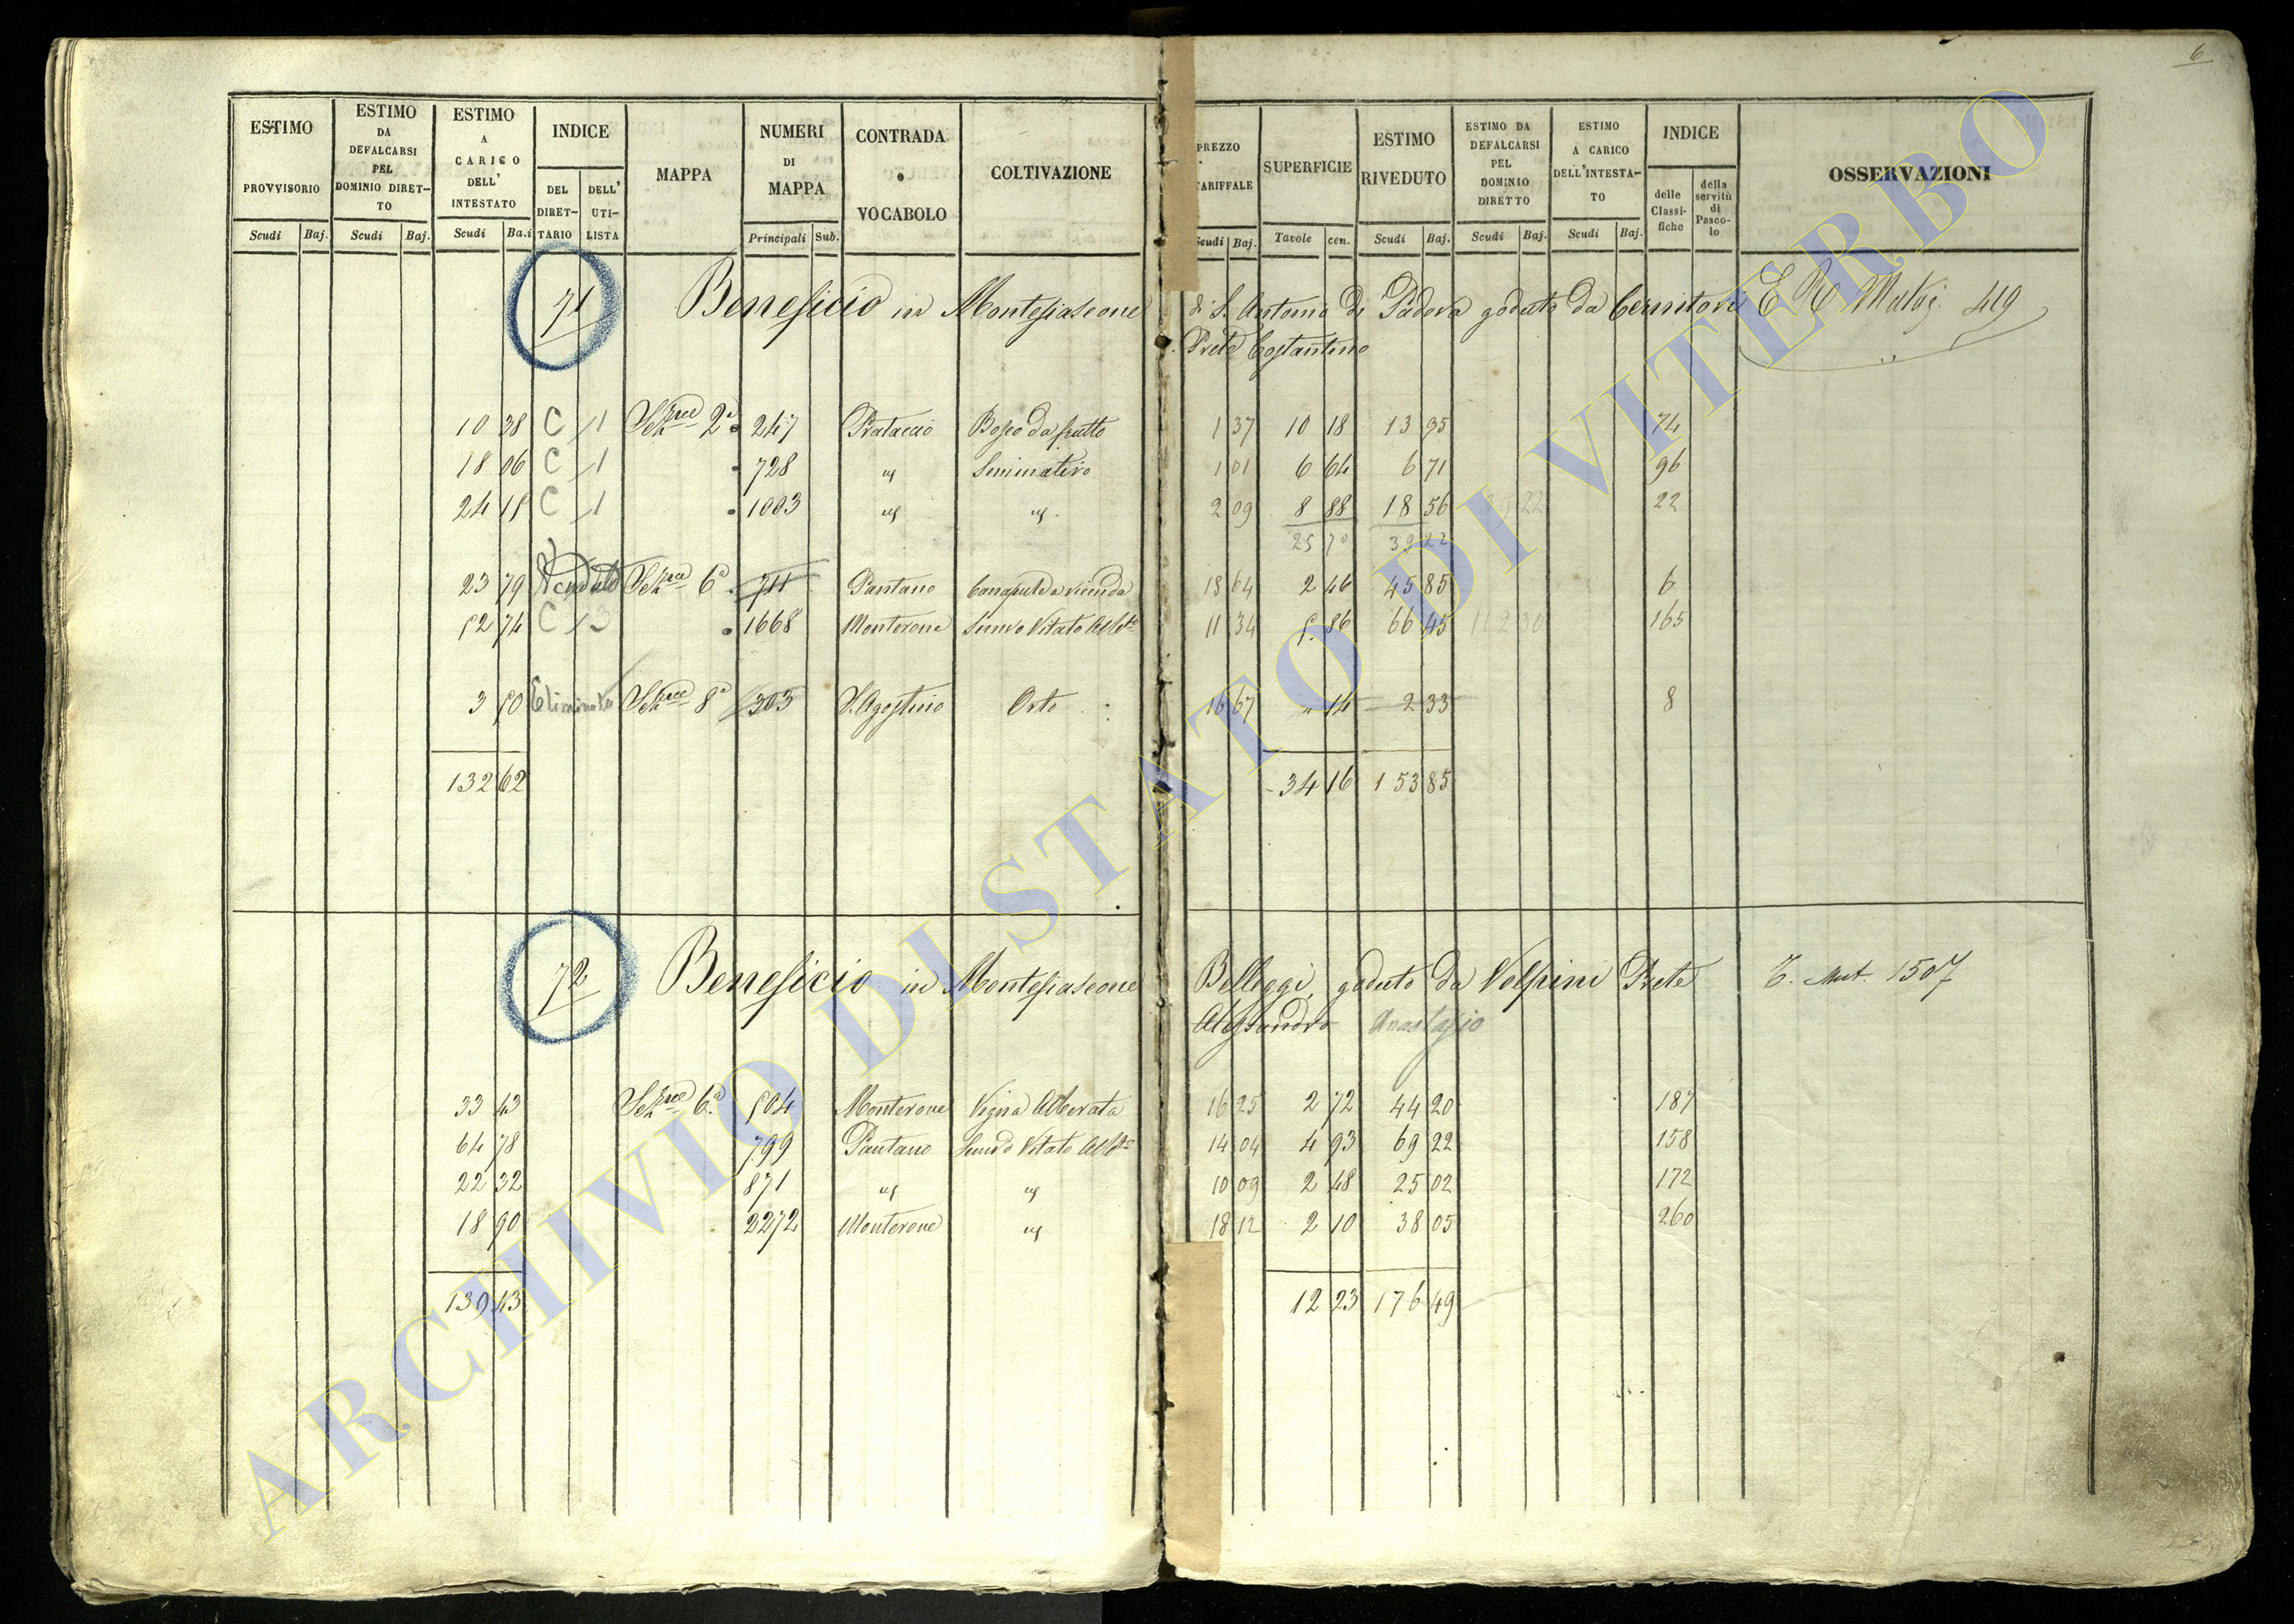 6
ESTIMO PROVVISORIO Scudi Baj.
ESTIMO DA DEFALCARSI PEL DOMINIO DIRET-TO Scudi Baj.
ESTIMO A CARICO DELL' INTESTATO Scudi Ba.i
INDICE DEL DIRET-TARIO DELL' UTI-LISTA
MAPPA
NUMERI DI MAPPA Principali Sub.
CONTRADA o VOCABOLO
COLTIVAZIONE
PREZZO TARIFFALE Scudi Baj.
SUPERFICIE Tavole cen.
ESTIMO RIVEDUTO Scudi Baj.
ESTIMO DA DEFALCARSI PEL DOMINIO DIRETTO Scudi Baj.
ESTIMO A CARICO DELL'INTESTA-TO Scudi Baj.
INDICE delle Classi-fiche della servitù di Pasco-lo
OSSERVAZIONI
71 Beneficio in Montefiascone di S. Antonio di Padova goduto da Cernitori 419
Prete Costantino
10 38 C 1 Sezne 2a 247 Prataccio Bosco da frutto 1 37 10 18 13 95 74
18 06 C 1 728 " Seminativo 1 01 6 64 6 71 96
24 15 C 1 1003 " " 2 09 8 88 18 56 39 22 22
25 70 39 22
23 79 Venduto Sezne 6a 711 Pantano Canapule a vicenda 18 64 2 46 45 85 6
52 74 C 13 1668 Monterone Semvo Vitato Albto 11 34 5 86 66 45 112 30 165
3 50 Eliminato Sezne 8a 303 S. Agostino Orto 16 67 14 2 33 8
132 62 34 16 153 85
72 Beneficio in Montefiascone Belleggi, goduto da Volpini Prete T. Mut. 1507
Alessandro Anastasio
33 43 Sezne 6a 504 Monterone Vigna Alberata 16 25 2 72 44 20 187
64 78 799 Pantano Semvo Vitato Albto 14 04 4 93 69 22 158
22 32 871 " " 10 09 2 48 25 02 172
18 90 2272 Monterone " 18 12 2 10 38 05 260
139 43 12 23 176 49
ARCHIVIO DI STATO DI VITERBO